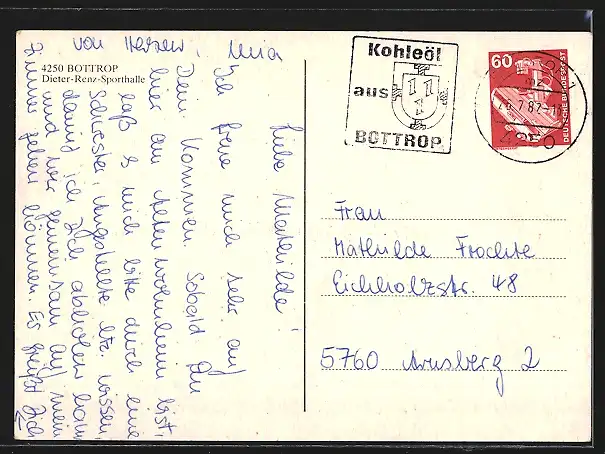 4250 BOTTROP
Dieter-Renz-Sporthalle
Liebe Mathilde!
Ich freue mich sehr auf
Dein Kommen. Sobald Du
hier am Altenwohnheim bist,
laß es mich bitte durch eine
Schwester, Angestellte etc. wissen,
damit ich Dich abholen kann
und wir gemeinsam auf mein
Zimmer gehen können. Es grüßt Dich
von Herzen, Mia
Kohleöl
aus
BOTTROP
60
DEUTSCHE BUNDESPOST
7.87
4250
Frau
Mathilde Frochte
Eichholzstr. 48
5760 Arnsberg 2